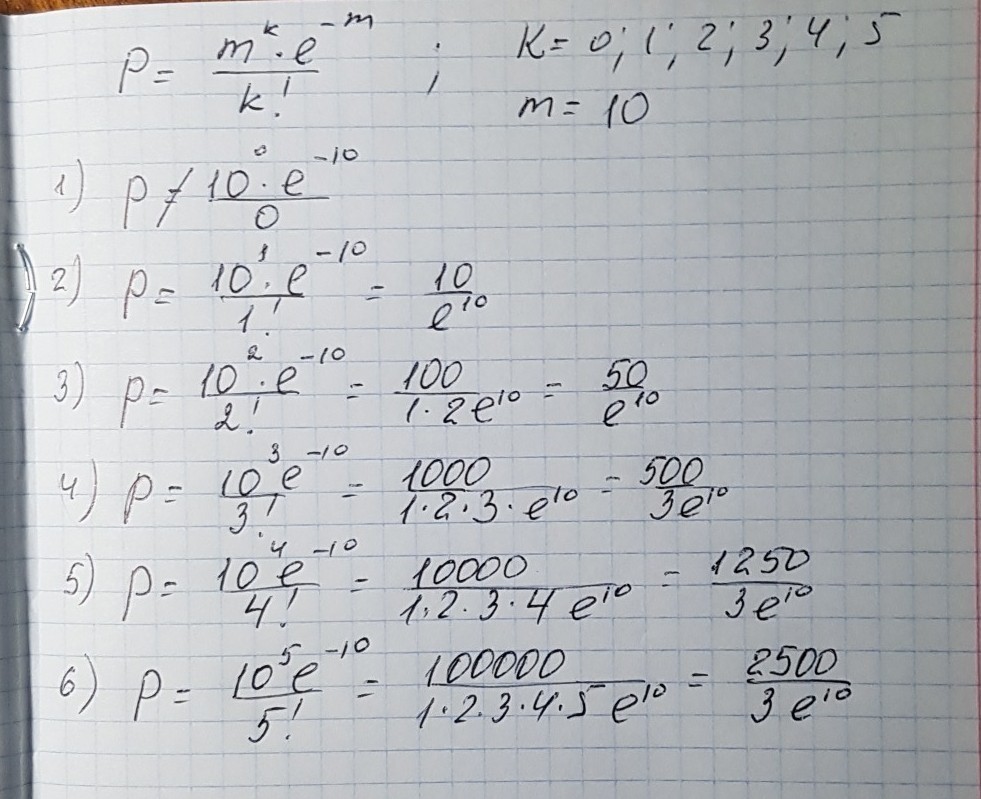 P = \frac{m^k \cdot e^{-m}}{k!} ; K = 0; 1; 2; 3; 4; 5
m = 10
1) P ≠ \frac{10^0 \cdot e^{-10}}{0}
2) P = \frac{10^1 \cdot e^{-10}}{1!} = \frac{10}{e^{10}}
3) P = \frac{10^2 \cdot e^{-10}}{2!} = \frac{100}{1 \cdot 2e^{10}} = \frac{50}{e^{10}}
4) P = \frac{10^3 e^{-10}}{3!} = \frac{1000}{1 \cdot 2 \cdot 3 \cdot e^{10}} = \frac{500}{3e^{10}}
5) P = \frac{10^4 e^{-10}}{4!} = \frac{10000}{1 \cdot 2 \cdot 3 \cdot 4 e^{10}} = \frac{1250}{3e^{10}}
6) P = \frac{10^5 e^{-10}}{5!} = \frac{100000}{1 \cdot 2 \cdot 3 \cdot 4 \cdot 5 e^{10}} = \frac{2500}{3e^{10}}